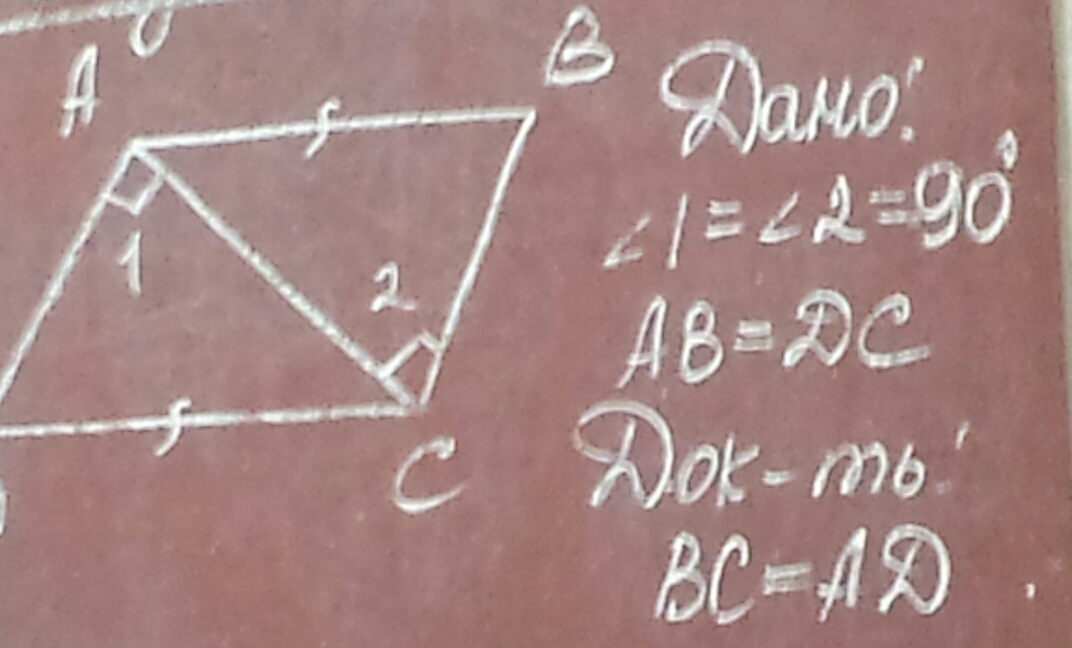 A
B
1
2
C
Дано:
∠1=∠2=90°
AB=DC
Док-ть:
BC=AD